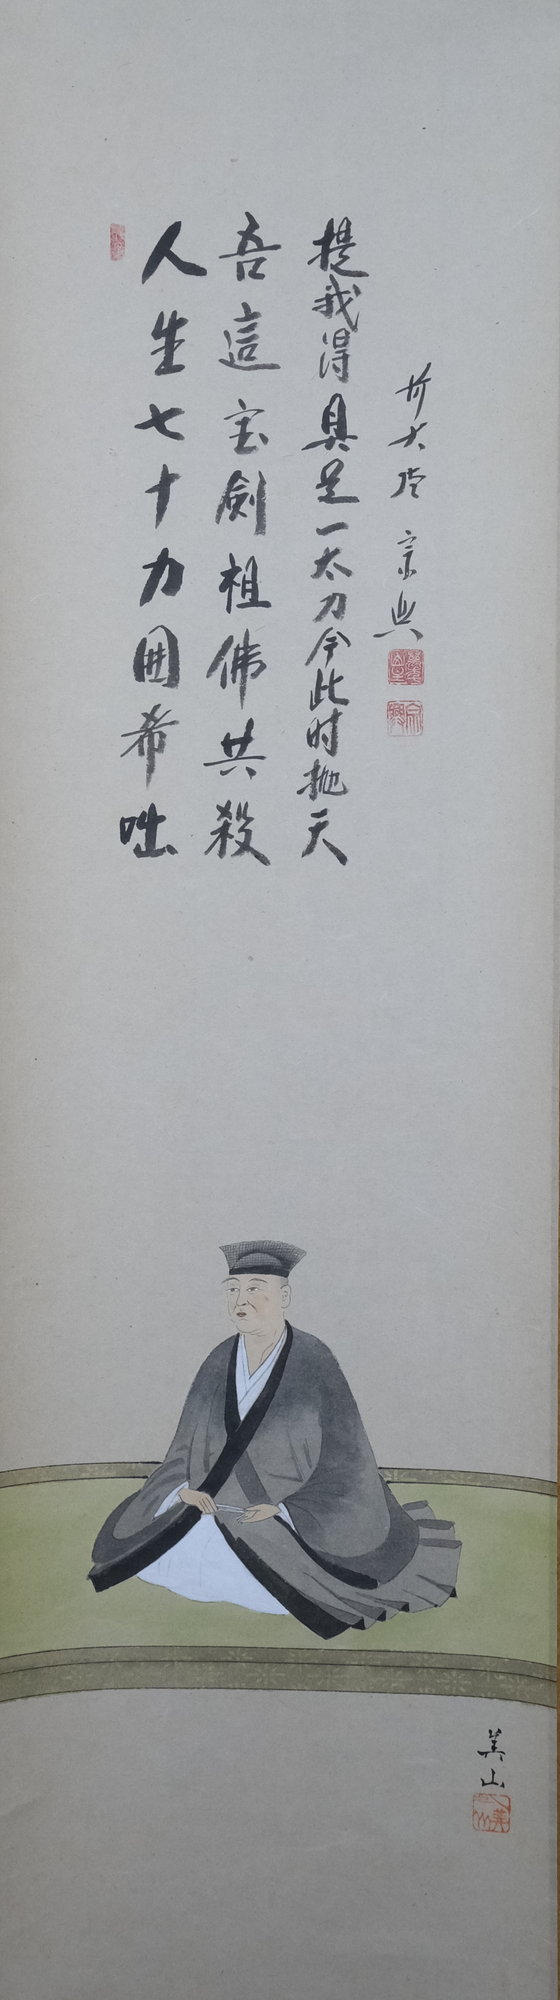 人生七十力囲希咄
吾這宝剣祖佛共殺
提我得具足一太刀今此时抛天
前大徳 宗興
美山